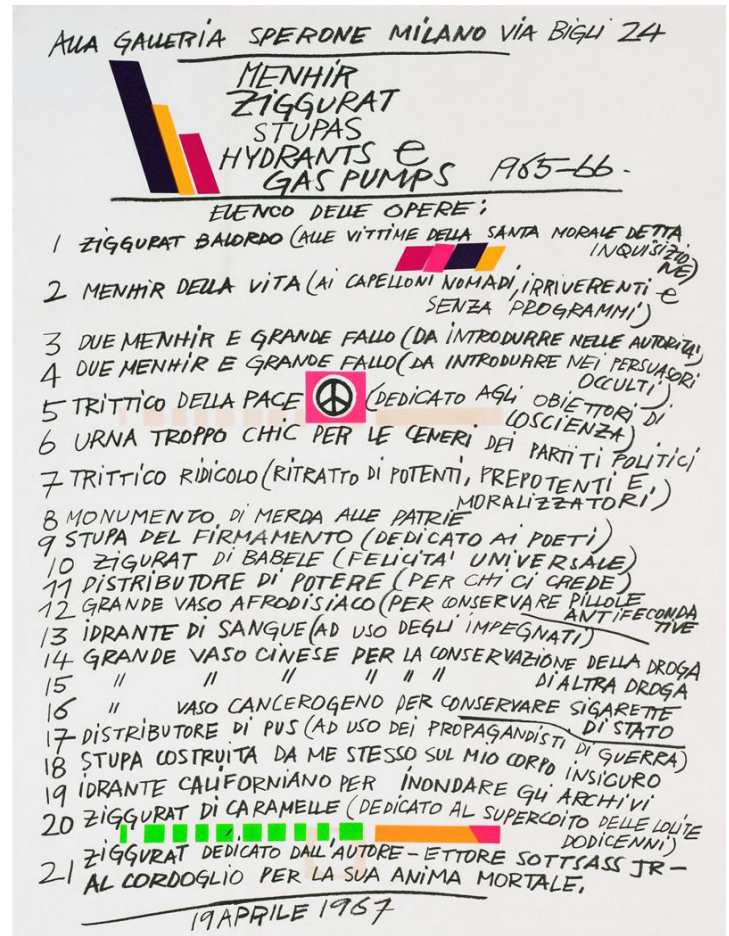 ALLA GALLERIA SPERONE MILANO VIA BIGLI 24
MENHIR
ZIGGURAT
STUPAS
HYDRANTS e
GAS PUMPS 1965-66.
ELENCO DELLE OPERE:
1 ZIGGURAT BALORDO (ALLE VITTIME DELLA SANTA MORALE DETTA
INQUISIZIO
NE)
2 MENHIR DELLA VITA (AI CAPELLONI NOMADI, IRRIVERENTI e
SENZA PROGRAMMI)
3 DUE MENHIR E GRANDE FALLO (DA INTRODURRE NELLE AUTORITÀ)
4 DUE MENHIR E GRANDE FALLO (DA INTRODURRE NEI PERSUASORI
OCCULTI)
5 TRITTICO DELLA PACE (DEDICATO AGLI OBIETTORI DI
COSCIENZA)
6 URNA TROPPO CHIC PER LE CENERI DEI PARTITI POLITICI
7 TRITTICO RIDICOLO (RITRATTO DI POTENTI, PREPOTENTI E,
MORALIZZATORI)
8 MONUMENTO DI MERDA ALLE PATRIE
9 STUPA DEL FIRMAMENTO (DEDICATO AI POETI)
10 ZIGURAT DI BABELE (FELICITA' UNIVERSALE)
11 DISTRIBUTORE DI POTERE (PER CHI CI CREDE)
12 GRANDE VASO AFRODISIACO (PER CONSERVARE PILLOLE
ANTIFECONDA
TIVE
13 IDRANTE DI SANGUE (AD USO DEGLI IMPEGNATI)
14 GRANDE VASO CINESE PER LA CONSERVAZIONE DELLA DROGA
15 " " " " " " DI ALTRA DROGA
16 " VASO CANCEROGENO PER CONSERVARE SIGARETTE
DI STATO
17 DISTRIBUTORE DI PUS (AD USO DEI PROPAGANDISTI DI GUERRA)
18 STUPA COSTRUITA DA ME STESSO SUL MIO CORPO INSICURO
19 IDRANTE CALIFORNIANO PER INONDARE GLI ARCHIVI
20 ZIGGURAT DI CARAMELLE (DEDICATO AL SUPERCOITO DELLE LOLITE
DODICENNI)
21 ZIGGURAT DEDICATO DALL'AUTORE - ETTORE SOTTSASS JR -
AL CORDOGLIO PER LA SUA ANIMA MORTALE.
19 APRILE 1967